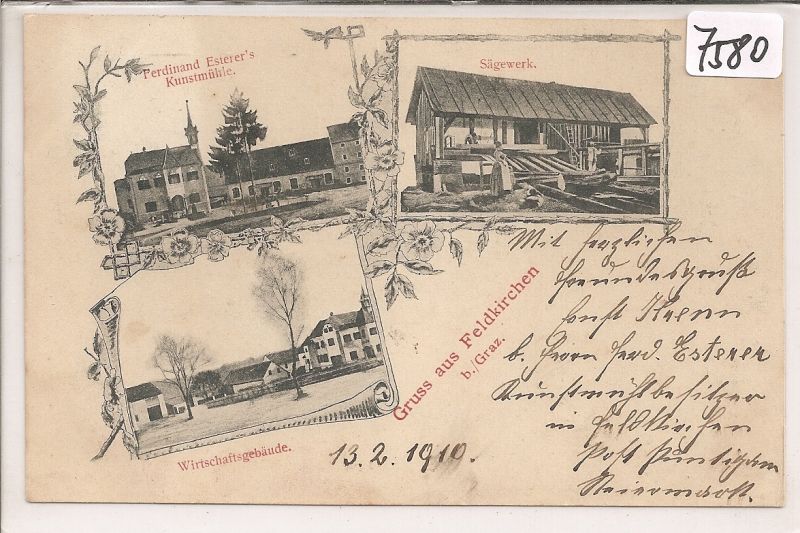 7580
Ferdinand Esterer's
Kunstmühle.
Sägewerk.
Gruss aus Feldkirchen
b./Graz.
Wirtschaftsgebäude.
Mit herzlichen
Freundesgruß
Ernst
b. Herrn Ferd. Esterer
Kunstmühlbesitzer
in Feldkirchen
Post Puntigam
Steiermark.
13.2.1910.